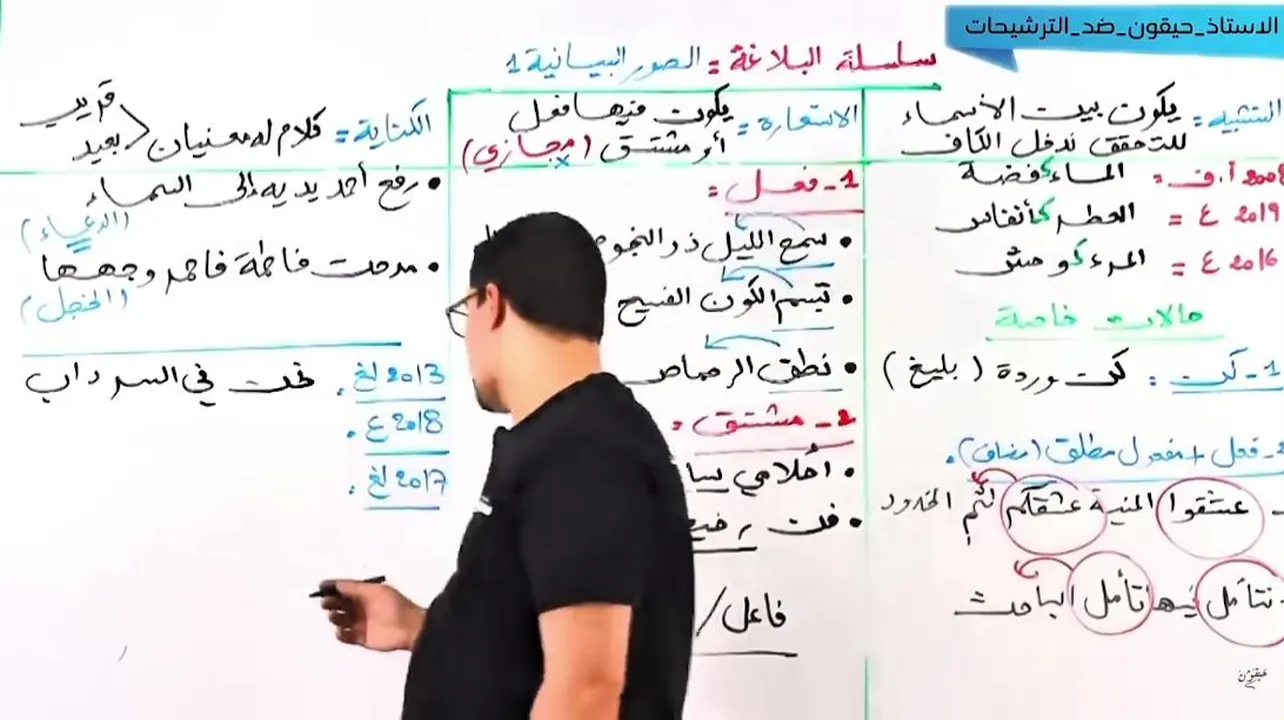 الاستاذ_حيقون_ضد_الترشيحات
سلسلة البلاغة = الصور البيانية 1
التشبيه = يكون بين الأسماء
للتحقق ندخل الكاف
2008 أ.ف = الماء ك فضة
2019 ع = العطر ك أنفاس
2016 ع = المرء ك وحش
حالات خاصة
1- كنت : كنت وردة (بليغ)
2- فعل + مفعول مطلق (مضاف).
عشقوا المنية عشقكم لثم الخدود
نتأمل فيها تأمل الباحث
الاستعارة = يكون فيها فعل
أو مشتق (مجازي)
x
1- فعل =
• سمع الليل ذو النجوم
• تبسم الكون الفسيح
• نطق الرصاص
2- مشتق =
• أحلامي
فاعل /
الكناية = كلام له معنيان قريب
بعيد
• رفع أحمد يديه إلى السماء
(الدعاء)
• مدحت فاطمة فاحمر وجهها
(الخجل)
2013 لغ . نحن في السرداب
2018 ع .
2017 لغ .